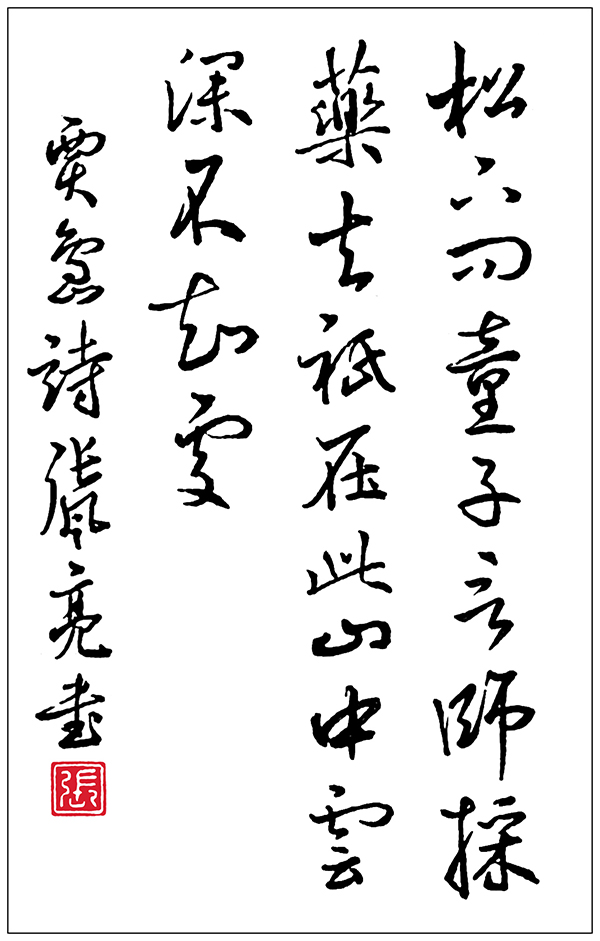 松下問童子言師採
藥去祗在此山中雲
深不知處
賈島詩張亮書
張